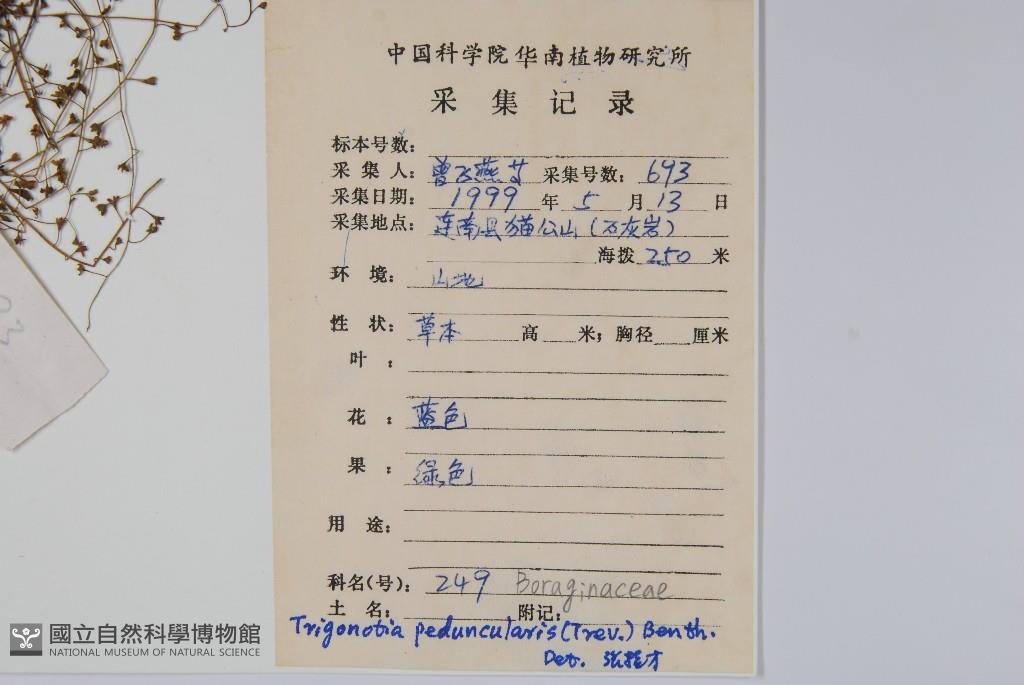 中国科学院华南植物研究所
采集记录
标本号数:
采集人: 曾飞燕等 采集号数: 693
采集日期: 1999 年 5 月 13 日
采集地点: 连南县猫公山(石灰岩)
海拨 250 米
环境: 山地
性状: 草本 高 米; 胸径 厘米
叶:
花: 蓝色
果: 绿色
用途:
科名(号): 249 Boraginaceae
土名: 附记:
Trigonotia peduncularis (Trev.) Benth.
Det.
國立自然科學博物館
NATIONAL MUSEUM OF NATURAL SCIENCE